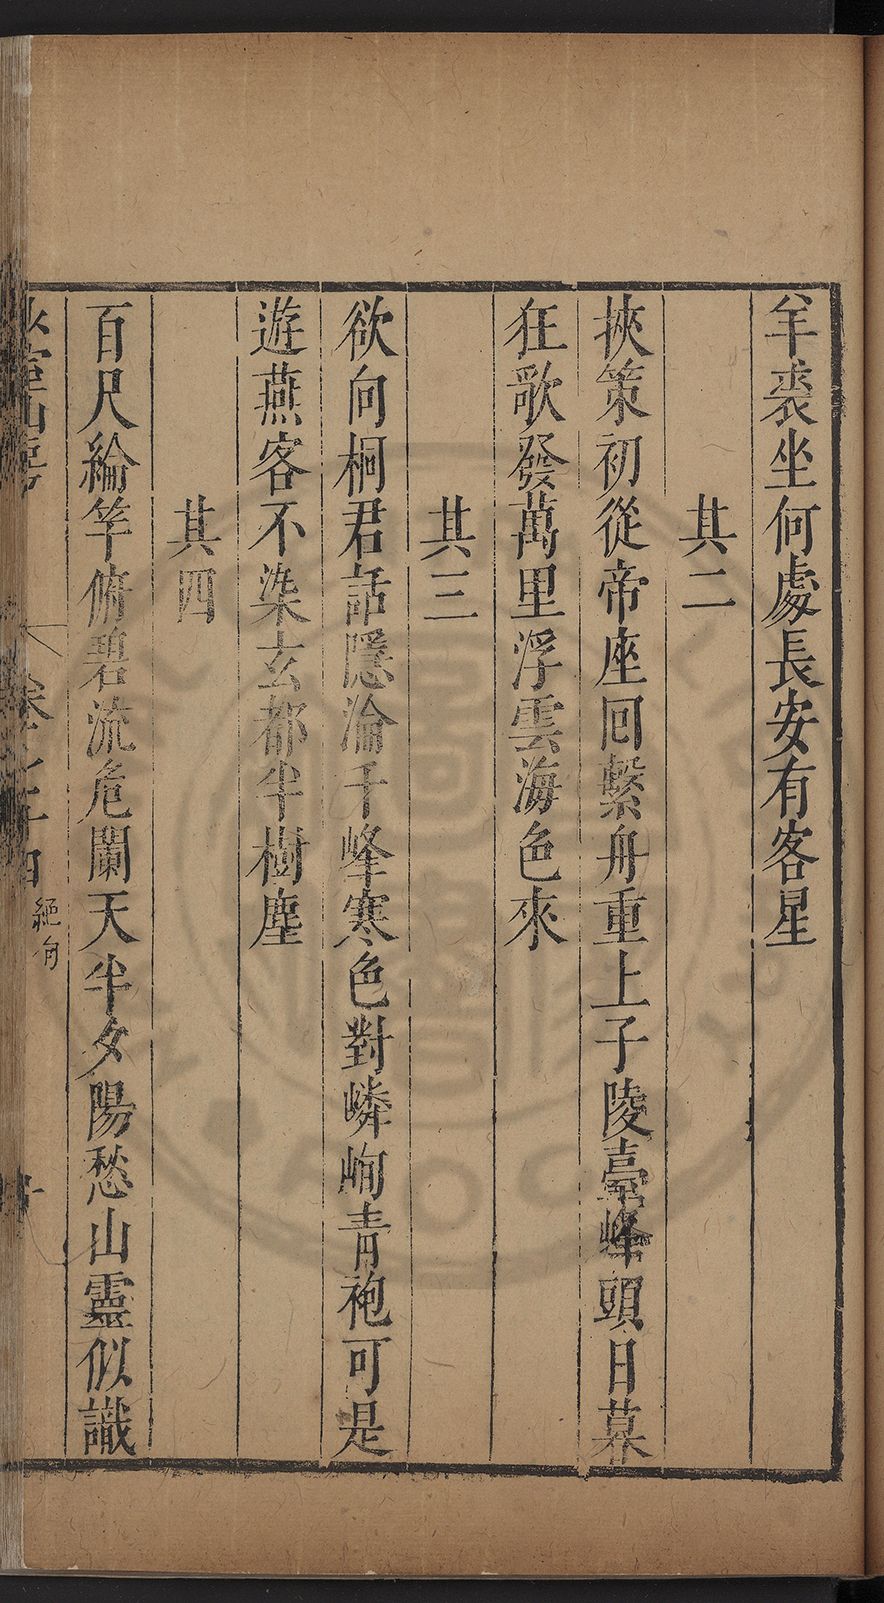 羊裘坐何處長安有客星
其二
挾策初從帝座回繫舟重上子陵臺峰頭日暮
狂歌發萬里浮雲海色來
其三
欲向桐君話隱淪千峰寒色對嶙峋青袍可是
遊燕客不染玄都半樹塵
其四
百尺綸竿俯碧流危闌天半夕陽愁山靈似識
卷之十四
絕句